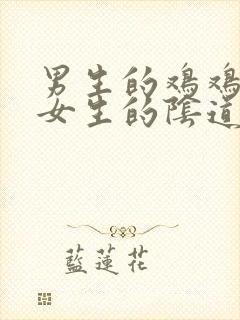 男生的鸡鸡
女生的陰道
藍蓮花